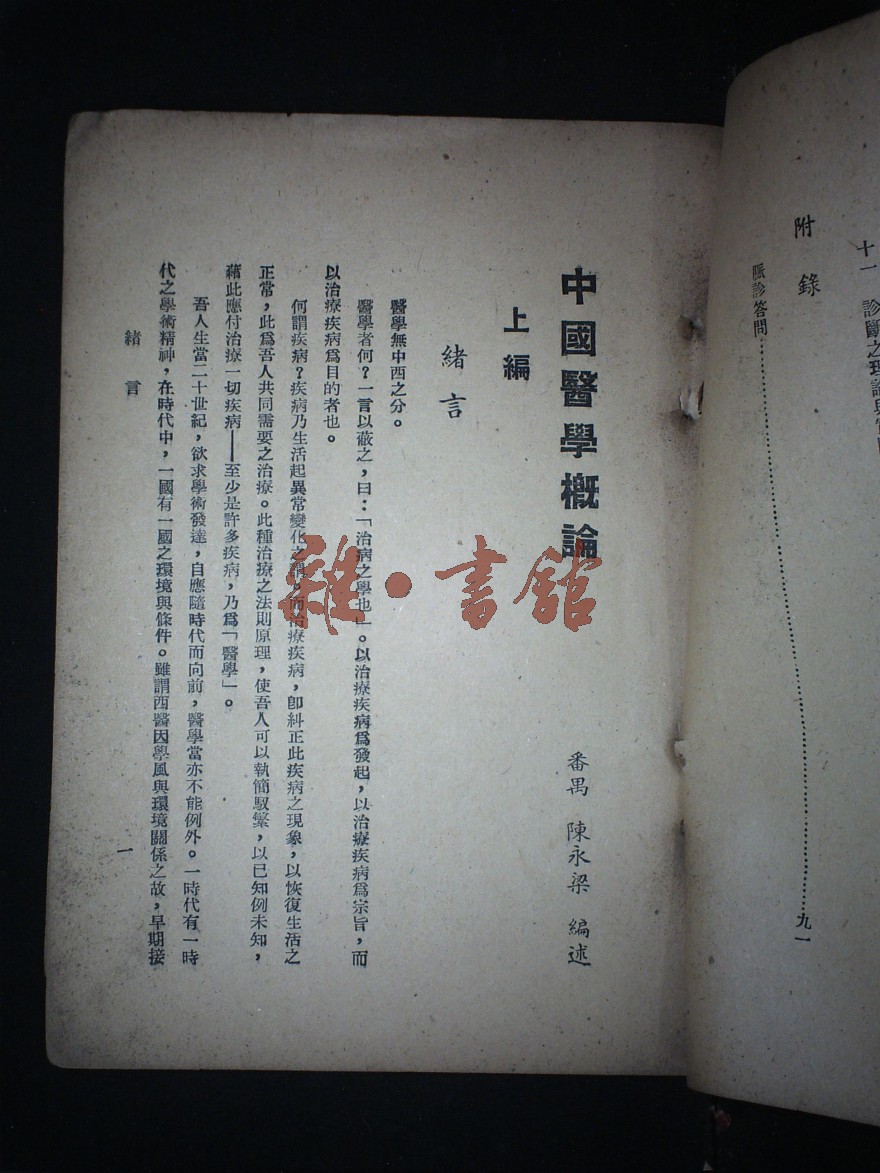 十一　診斷之理論與實
附　錄
脈診答問……………………九一
中國醫學概論
番禺　陳永梁　編述
上編
緒言
醫學無中西之分。
醫學者何？一言以蔽之，曰：「治病之學也」。以治療疾病爲發起，以治療疾病爲宗旨，而
以治療疾病爲目的者也。
何謂疾病？疾病乃生活起異常變化之謂。而治療疾病，卽糾正此疾病之現象，以恢復生活之
正常，此爲吾人共同需要之治療。此種治療之法則原理，使吾人可以執簡馭繁，以已知例未知，
藉此應付治療一切疾病——至少是許多疾病，乃爲「醫學」。
吾人生當二十世紀，欲求學術發達，自應隨時代而向前，醫學當亦不能例外。一時代有一時
代之學術精神，在時代中，一國有一國之環境與條件。雖謂西醫因學風與環境關係之故，早期接
緒　言
一
雜·書館